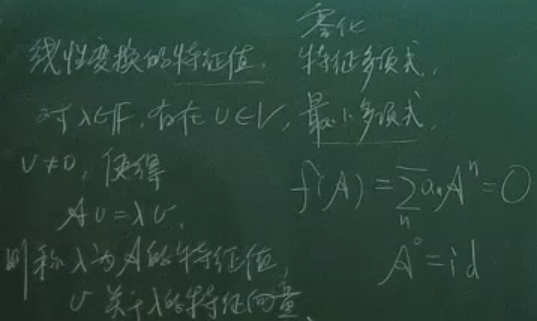 线性变换的特征值.
对 λ∈F, 存在 v∈V,
v≠0, 使得
Av=λv.
则称 λ 为 A 的特征值,
v 关于 λ 的特征向量.
零化
特征多项式,
最小多项式,
f(A)=∑ₙ aₙAⁿ=0
A⁰=id